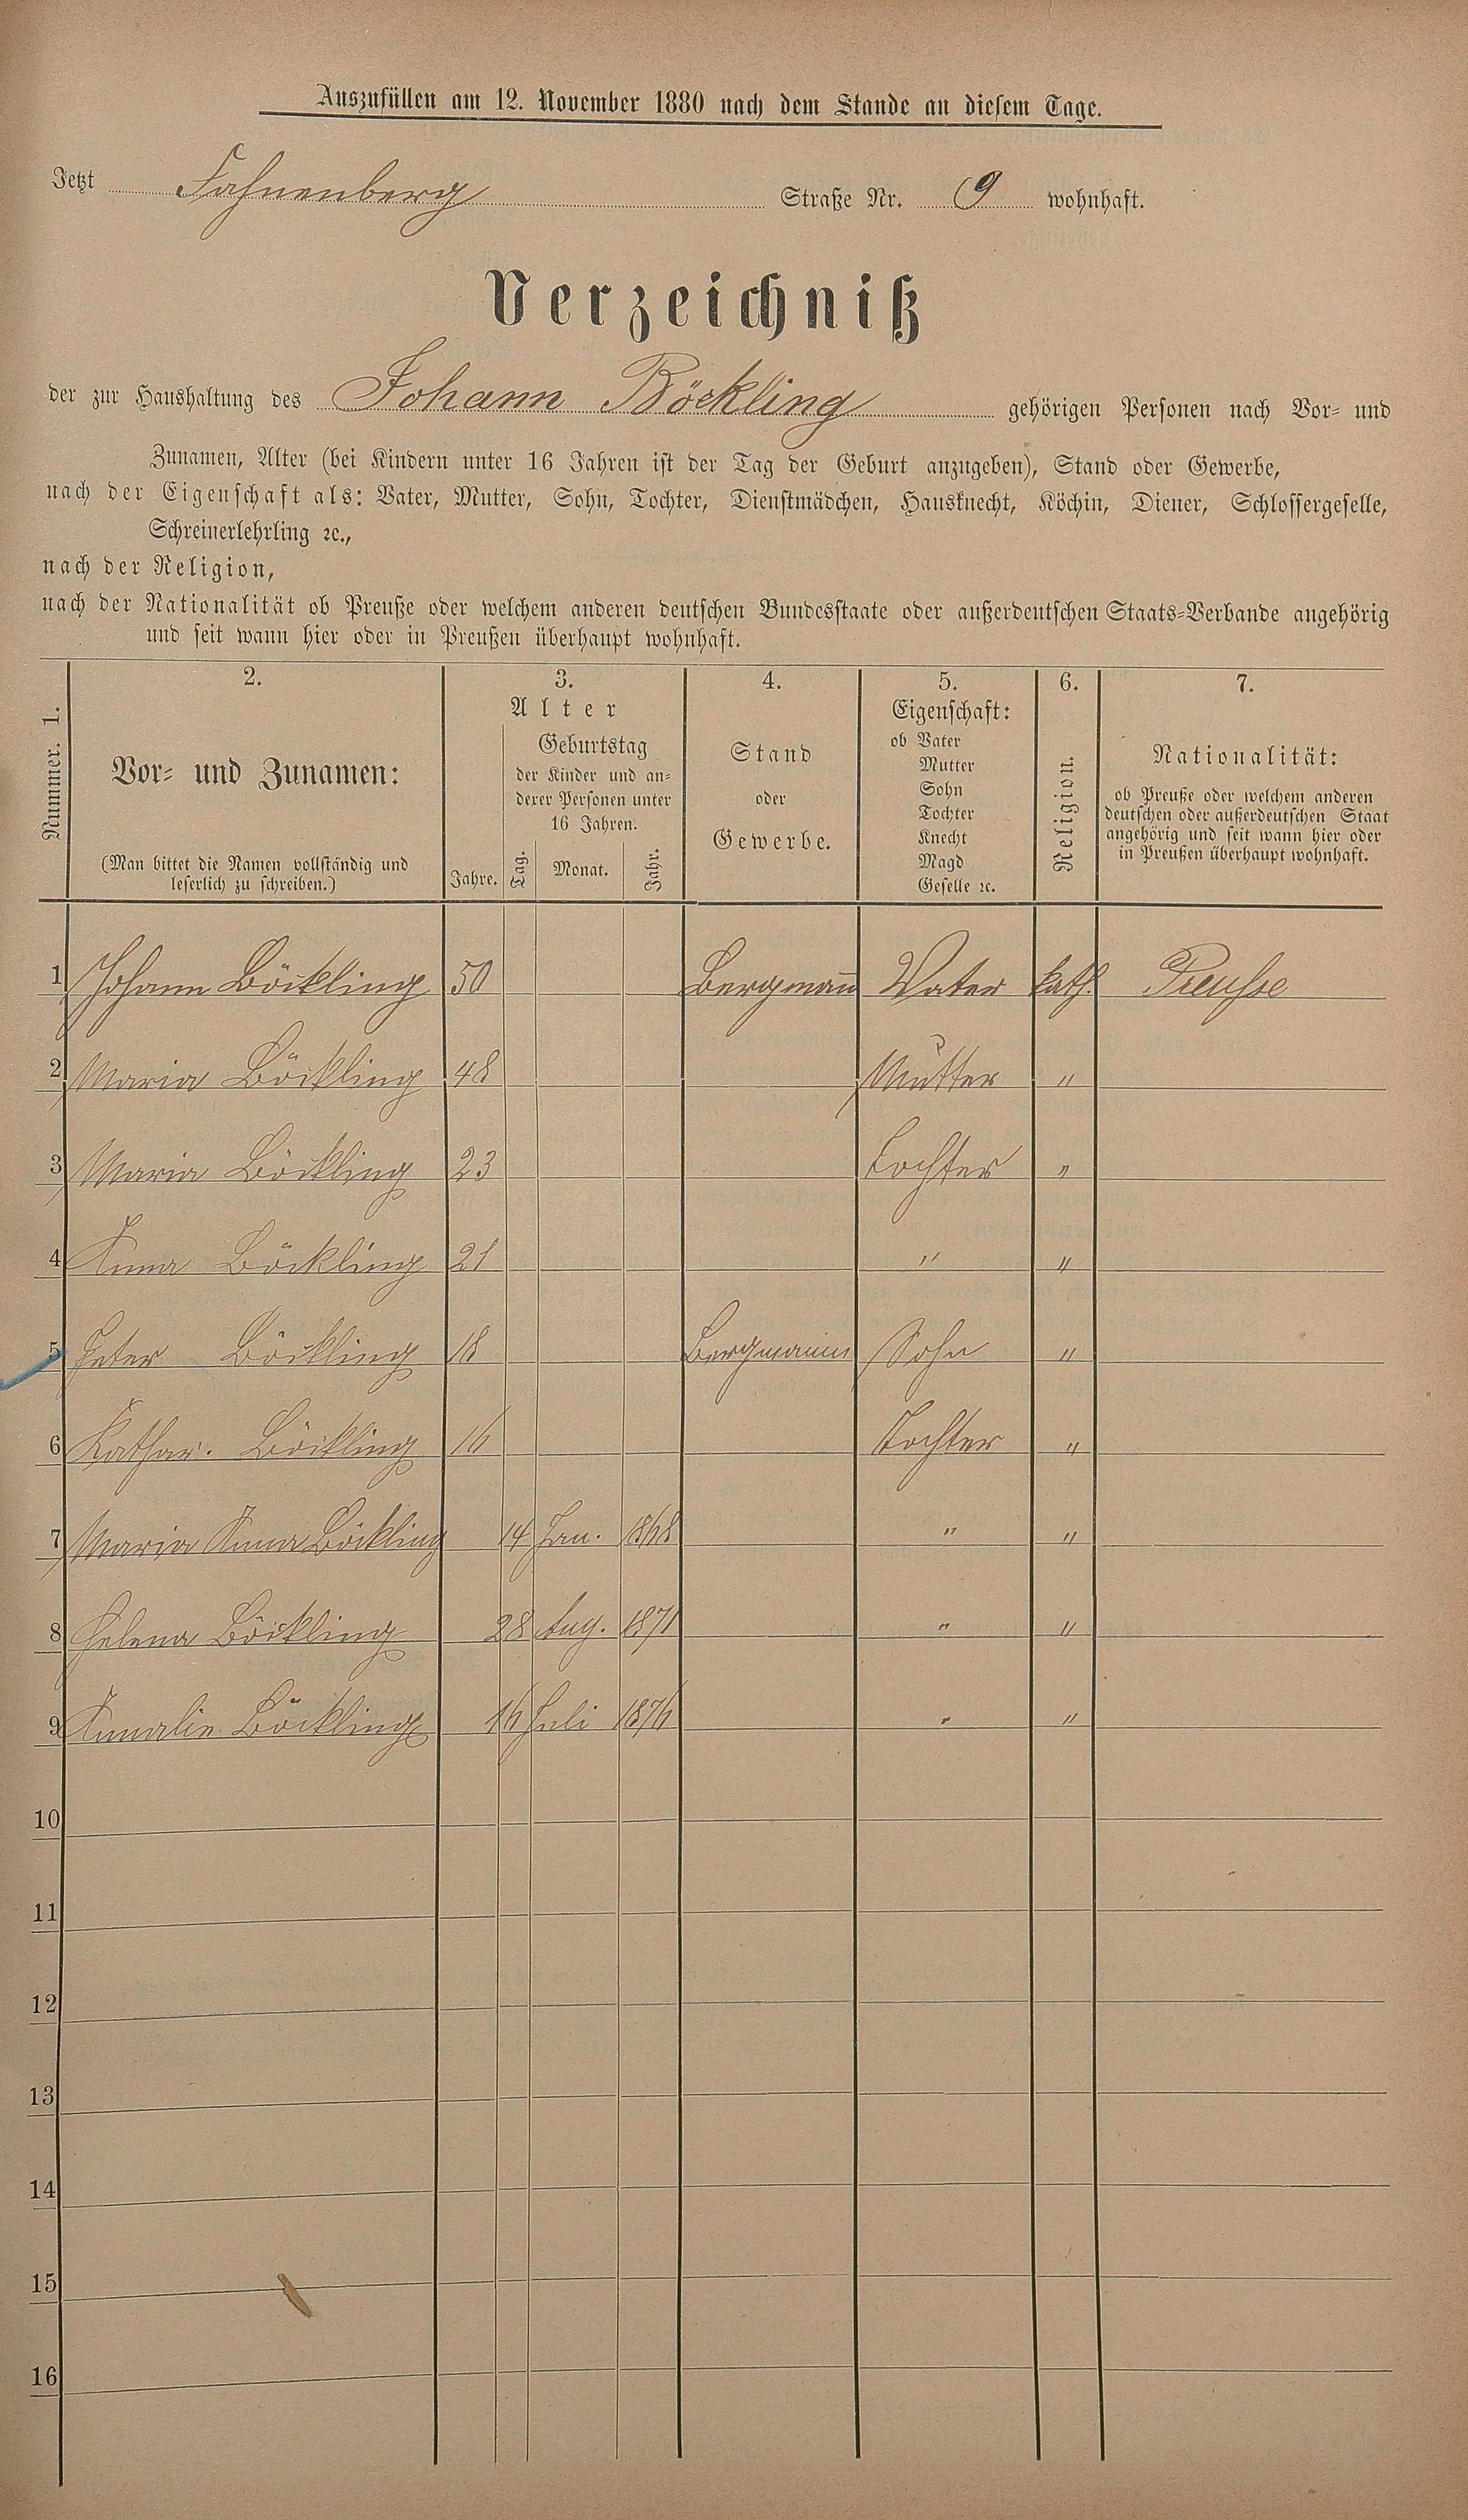 Auszufüllen am 12. November 1880 nach dem Stande an diesem Tage.
Jetzt Fahnenberg Straße Nr. 9 wohnhaft.
Verzeichniß
der zur Haushaltung des Johann Böckling gehörigen Personen nach Vor- und
Zunamen, Alter (bei Kindern unter 16 Jahren ist der Tag der Geburt anzugeben), Stand oder Gewerbe,
nach der Eigenschaft als: Vater, Mutter, Sohn, Tochter, Dienstmädchen, Hausknecht, Köchin, Diener, Schlossergeselle,
Schreinerlehrling ꝛc.,
nach der Religion,
nach der Nationalität ob Preuße oder welchem anderen deutschen Bundesstaate oder außerdeutschen Staats-Verbande angehörig
und seit wann hier oder in Preußen überhaupt wohnhaft.
Nummer. 1.
2.
Vor- und Zunamen:
(Man bittet die Namen vollständig und
leserlich zu schreiben.)
3.
Alter
Jahre.
Geburtstag
der Kinder und an-
derer Personen unter
16 Jahren.
Tag. Monat. Jahr.
4.
Stand
oder
Gewerbe.
5.
Eigenschaft:
ob Vater
Mutter
Sohn
Tochter
Knecht
Magd
Geselle ꝛc.
6.
Religion.
7.
Nationalität:
ob Preuße oder welchem anderen
deutschen oder außerdeutschen Staat
angehörig und seit wann hier oder
in Preußen überhaupt wohnhaft.
1 Johann Böckling 50 Bergmann Vater kath. Preusse
2 Maria Böckling 48 Mutter "
3 Maria Böckling 23 Tochter "
4 Anna Böckling 21 " "
5 Peter Böckling 18 Bergmann Sohn "
6 Kathar. Böckling 16 Tochter "
7 Maria Anna Böckling 14 Jan. 1868 " "
8 Helena Böckling 28 Aug. 1871 " "
9 Annalie Böckling 16 Juli 1876 " "
10
11
12
13
14
15
16